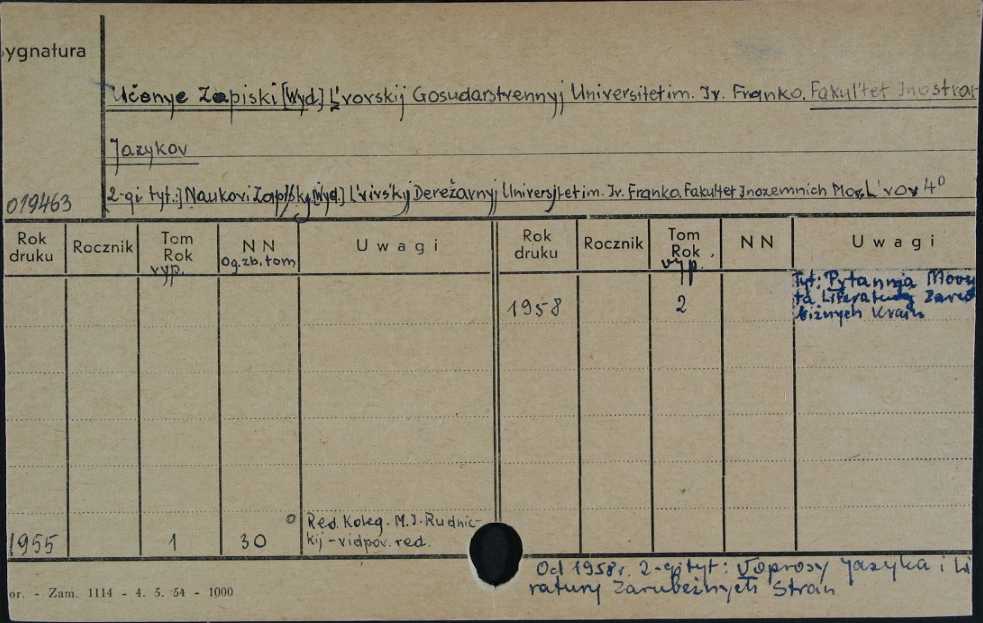 ygnatura
Učenye Zapiski [Wyd.] L'vovskij Gosudarstvennyj Universitet im. Iv. Franko. Fakul'tet Inostran
Jazykov
2-gi tyt.:] Naukovi Zapysky [Wyd.] L'vivs'kyj Deržavnyj Universytet im. Iv. Franka. Fakultet Inozemnich Mov. L'vov 4°
019463
Rok druku Rocznik Tom Rok vyp. NN Og.zb.tom Uwagi Rok druku Rocznik Tom Rok vyp. NN Uwagi
1958 2 Tyt: Pytannja Movy
ta Literatury Zaru
bižnych Krain
1955 1 30 Red. Koleg. M.J. Rudnic-
kij - vidpov. red.
Od 1958 r. 2-gi tyt: Voprosy Jazyka i Li
ratury Zarubežnych Stran
or. - Zam. 1114 - 4. 5. 54 - 1000